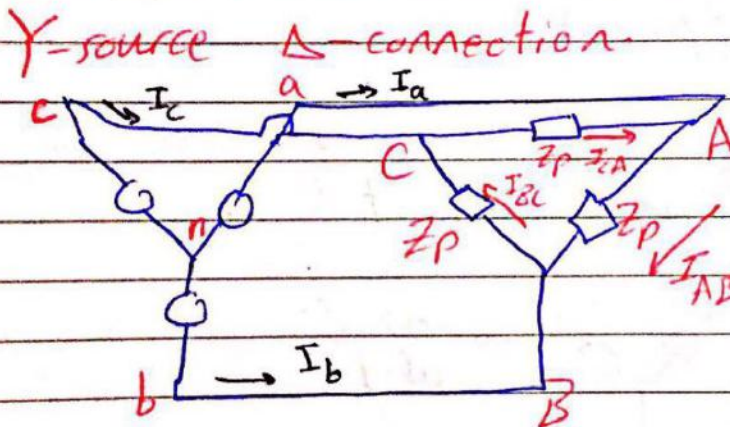 Y-source Δ-connection.
c I_c a I_a
C Z_P I_CA A
n Z_P I_BC Z_P I_AB
b I_b B